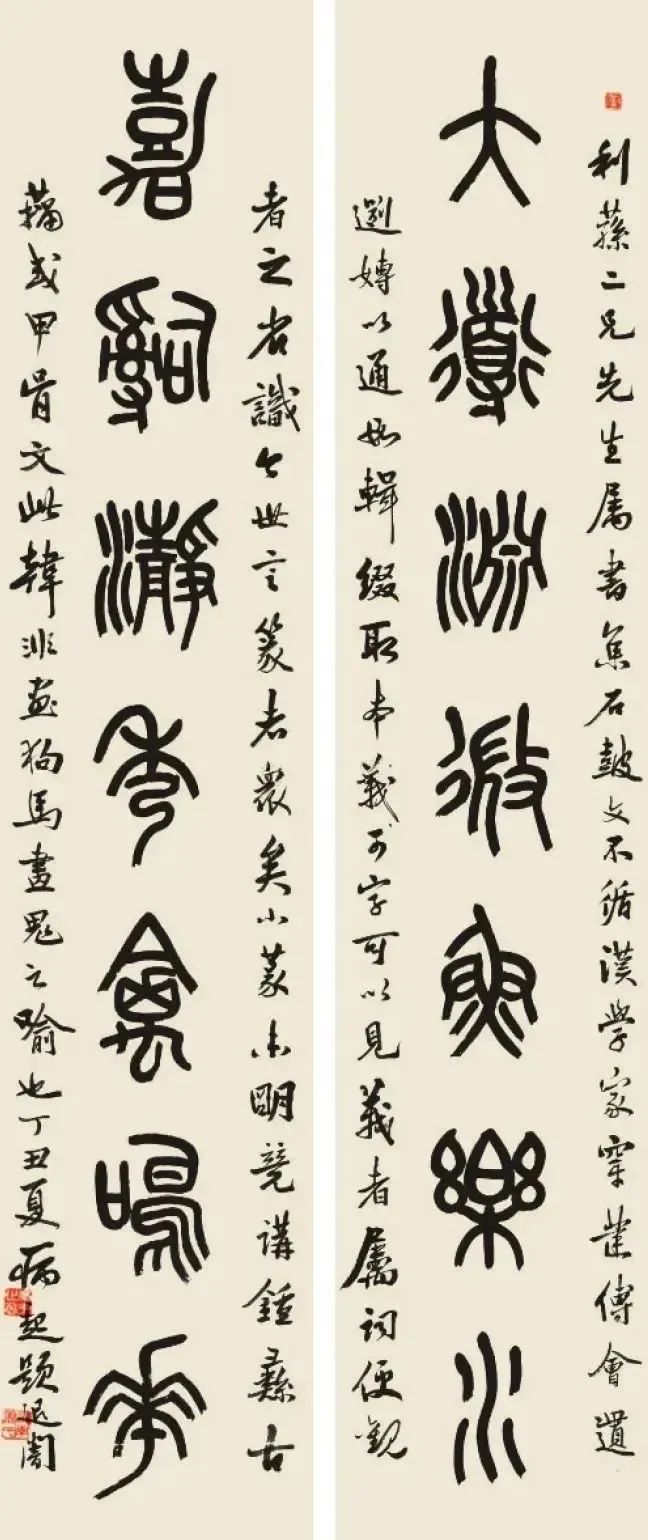 利蓀二兄先生属書集石鼓文不循漢學家穿鑿傅會
大道淵微魚樂水
嫥以通如輯綴取本義可字可以見義者屬詞便觀
者之省識今世言篆者衆矣小篆未明競講鍾彝古
嘉辭瀞秀禽鳴華
籀或甲骨文此韓非畫狗馬畫鬼之喻也丁丑夏病起題退闇